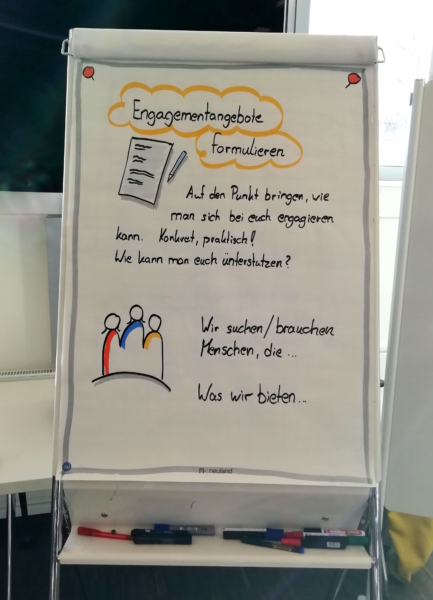 Engagementangebote
formulieren
Auf den Punkt bringen, wie
man sich bei euch engagieren
kann. Konkret, praktisch!
Wie kann man euch ünterstützen?
Wir suchen/brauchen
Menschen, die ...
Was wir bieten...
neuland